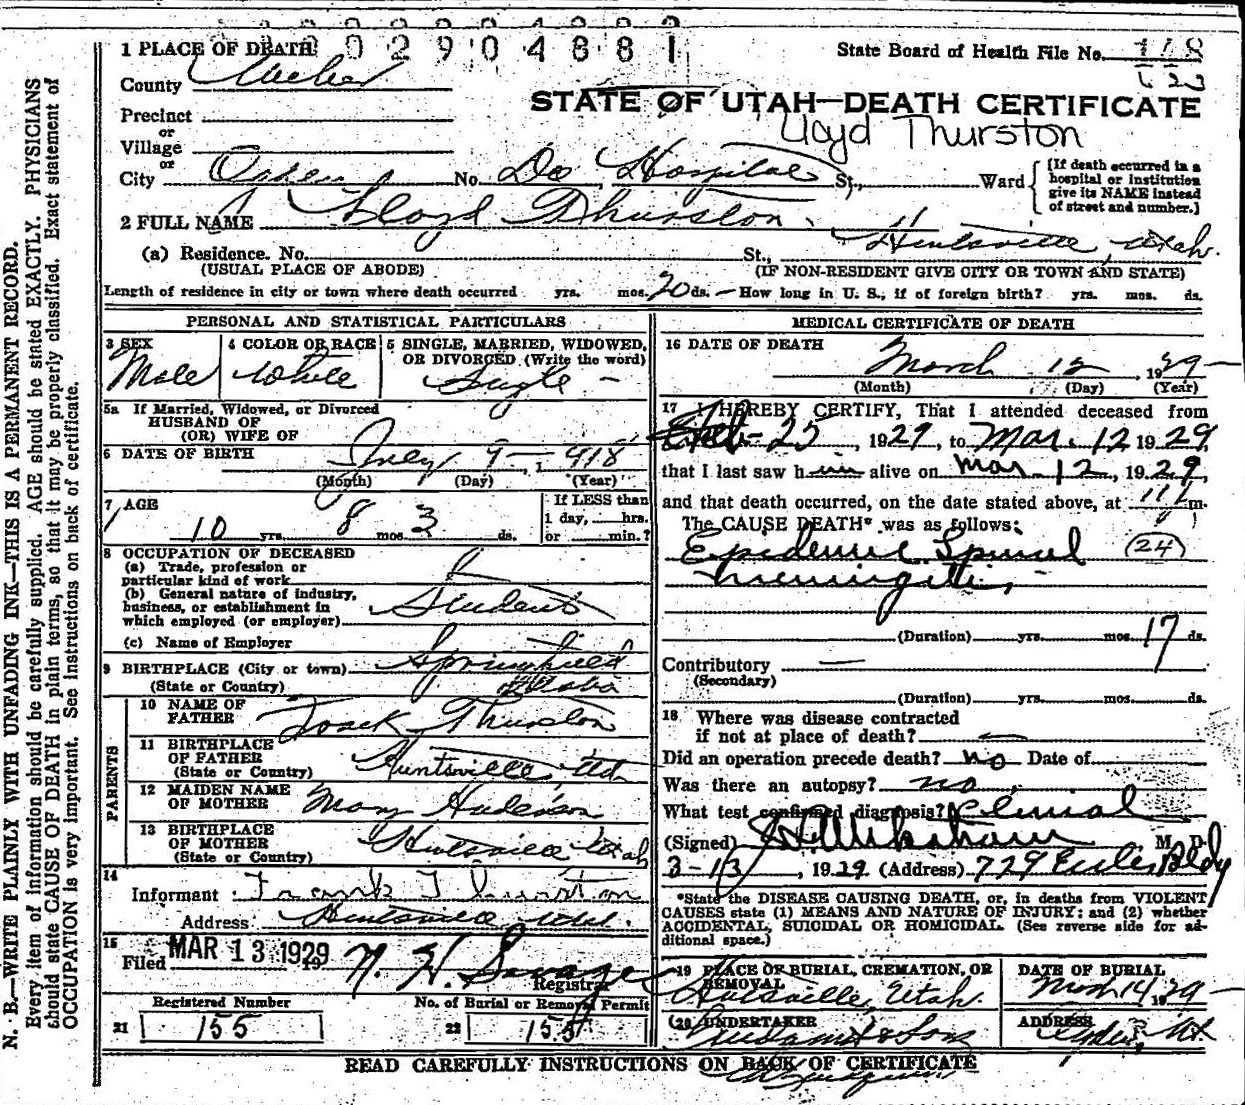 2904881
1 PLACE OF DEATH State Board of Health File No.
County Weber
STATE OF UTAH—DEATH CERTIFICATE
Precinct
or
Village
Lloyd Thurston
or
City Ogden No. Dee Hospital St., Ward
[If death occurred in a hospital or institution give its NAME instead of street and number.]
2 FULL NAME Lloyd Thurston
(a) Residence. No. St., Huntsville, Utah.
(USUAL PLACE OF ABODE) (IF NON-RESIDENT GIVE CITY OR TOWN AND STATE)
Length of residence in city or town where death occurred yrs. mos. 20 ds. — How long in U. S., if of foreign birth? yrs. mos. ds.
PERSONAL AND STATISTICAL PARTICULARS
3 SEX 4 COLOR OR RACE 5 SINGLE, MARRIED, WIDOWED,
OR DIVORCED (Write the word)
Male White Single —
5a If Married, Widowed, or Divorced
HUSBAND OF
(OR) WIFE OF
6 DATE OF BIRTH July 9— 1918
(Month) (Day) (Year)
7 AGE If LESS than
1 day, hrs.
10 yrs. 8 mos. 3 ds. or min.?
8 OCCUPATION OF DECEASED
(a) Trade, profession or
particular kind of work
(b) General nature of industry,
business, or establishment in
which employed (or employer) Student
(c) Name of Employer
9 BIRTHPLACE (City or town) Springfield
(State or Country) Idaho
PARENTS
10 NAME OF
FATHER Thurston
11 BIRTHPLACE
OF FATHER
(State or Country) Huntsville, Ut.
12 MAIDEN NAME
OF MOTHER Mary
13 BIRTHPLACE
OF MOTHER
(State or Country) Huntsville Utah
14
Informant Frank Thurston
Address Huntsville Utah.
15
Filed MAR 13 1929 19 N. H. Savage
Registrar
Registered Number No. of Burial or Removal Permit
21 155 22 155
MEDICAL CERTIFICATE OF DEATH
16 DATE OF DEATH March 12, 1929—
(Month) (Day) (Year)
17 I HEREBY CERTIFY, That I attended deceased from
Feb- 25, 1929, to Mar. 12 1929,
that I last saw him alive on Mar. 12, 1929,
and that death occurred, on the date stated above, at 11 m.
The CAUSE DEATH* was as follows:
Epidemic Spinal (24)
Meningitis,
(Duration) yrs. mos. 17 ds.
Contributory —
(Secondary)
(Duration) yrs. mos. ds.
18 Where was disease contracted
if not at place of death? —
Did an operation precede death? no Date of
Was there an autopsy? no
What test confirmed diagnosis? Clinical
(Signed) M. D.
3-13, 1929 (Address) 729 Eccles Bldg
*State the DISEASE CAUSING DEATH, or, in deaths from VIOLENT
CAUSES state (1) MEANS AND NATURE OF INJURY; and (2) whether
ACCIDENTAL, SUICIDAL OR HOMICIDAL. (See reverse side for ad-
ditional space.)
19 PLACE OF BURIAL, CREMATION, OR
REMOVAL
Huntsville, Utah.
DATE OF BURIAL
Mch 14 1929—
20 UNDERTAKER & Sons
ADDRESS Ogden, Ut.
READ CAREFULLY INSTRUCTIONS ON BACK OF CERTIFICATE
N. B.—WRITE PLAINLY WITH UNFADING INK—THIS IS A PERMANENT RECORD.
Every item of information should be carefully supplied. AGE should be stated EXACTLY. PHYSICIANS
should state CAUSE OF DEATH in plain terms, so that it may be properly classified. Exact statement of
OCCUPATION is very important. See instructions on back of certificate.